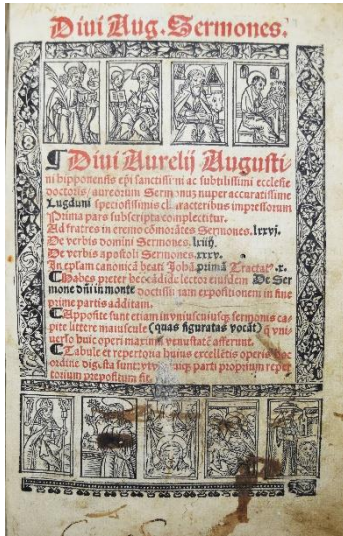 Diui Aug. Sermones.
¶ Diui Aurelij Augusti-
ni hipponensis epi sanctissimi ac subtilissimi ecclesie
doctoris aureorum Sermonum nuper accuratissime
Lugduni speciosissimis characteribus impressorum
Prima pars subscripta complectitur.
Ad fratres in eremo cōmorātes Sermones. lxxvj.
De verbis domini Sermones. lxiiij.
De verbis apostoli Sermones. xxxv.
In epsam canonicā beati Johā. primā Tractat⁹ .x.
¶ Habes preter hec cādide lector eiusdem De Ser
mone dñi in monte doctissimam expositionem in fine
prime partis additam.
¶ Apposite sunt etiam in vniuscuiusqꝫ sermonis ca-
pite littere maiuscule (quas figuratas vocāt) q̄ vni-
uerso huic operi maximā venustatē afferunt.
¶ Tabule et repertoria huius excellētis operis hoc
ordine digesta sunt: vt vnicuiqꝫ parti proprium reper
torium prepositum sit.